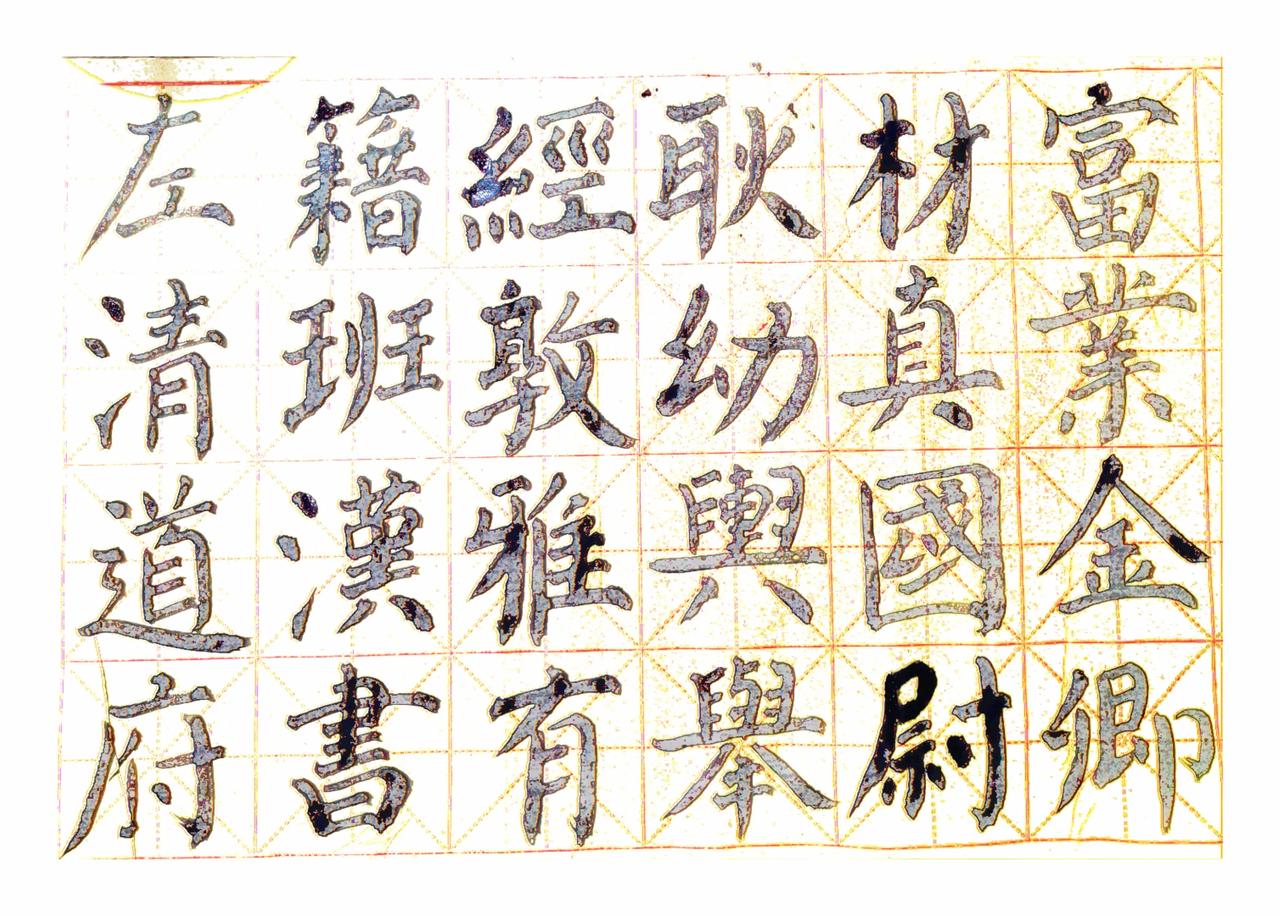 富業金卿
材真國尉
耿幼輿舉
經敦雅有
籍班漢書
左清道府